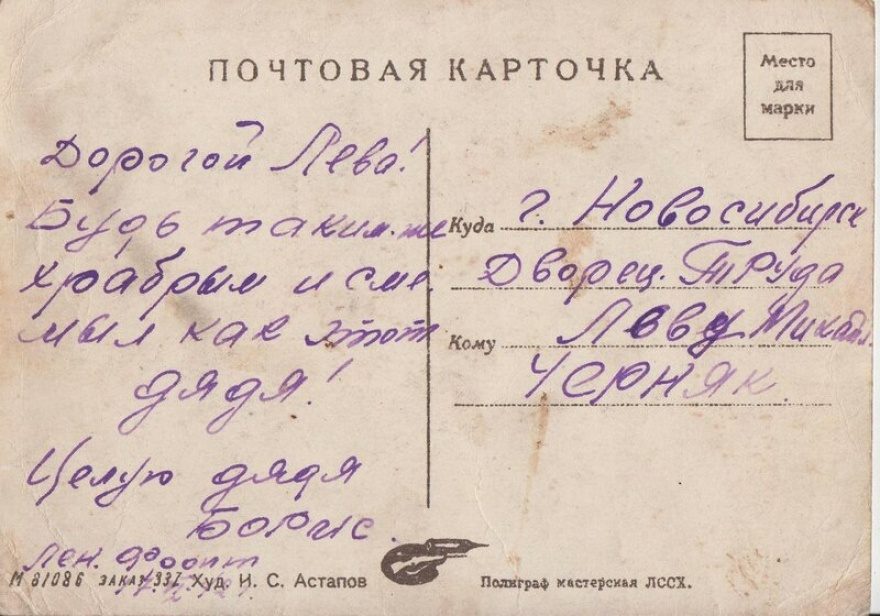 ПОЧТОВАЯ КАРТОЧКА
Место
для
марки
Дорогой Лева!
Будь таким-же
храбрым и сме-
мыл как этот
дядя!
Целую дядя
Борис.
Лен. Фронт
Куда г. Новосибирск
Дворец Труда
Кому Леву Михайл.
Черняк.
М 81086 ЗАКАЗ 337 Худ. И. С. Астапов
Полиграф мастерская ЛССХ.